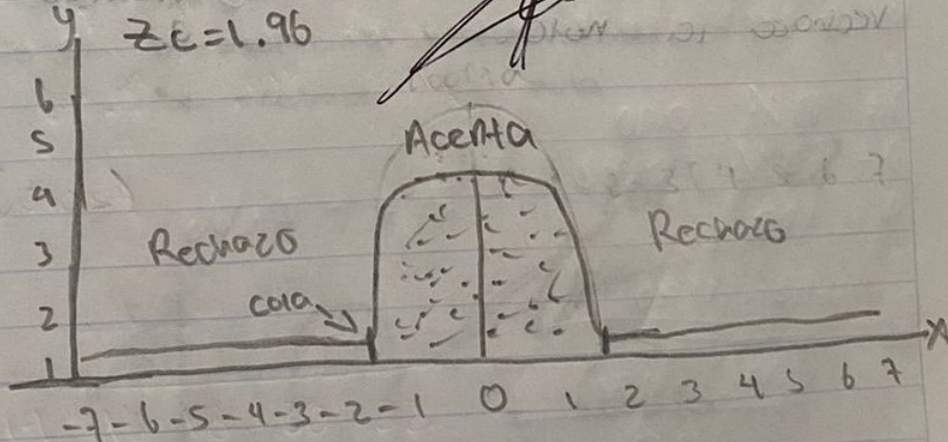 y Zc=1.96
6
5
Acepta
4
3 Rechazo Rechazo
cola
2
1
X
-7 -6 -5 -4 -3 -2 -1 0 1 2 3 4 5 6 7